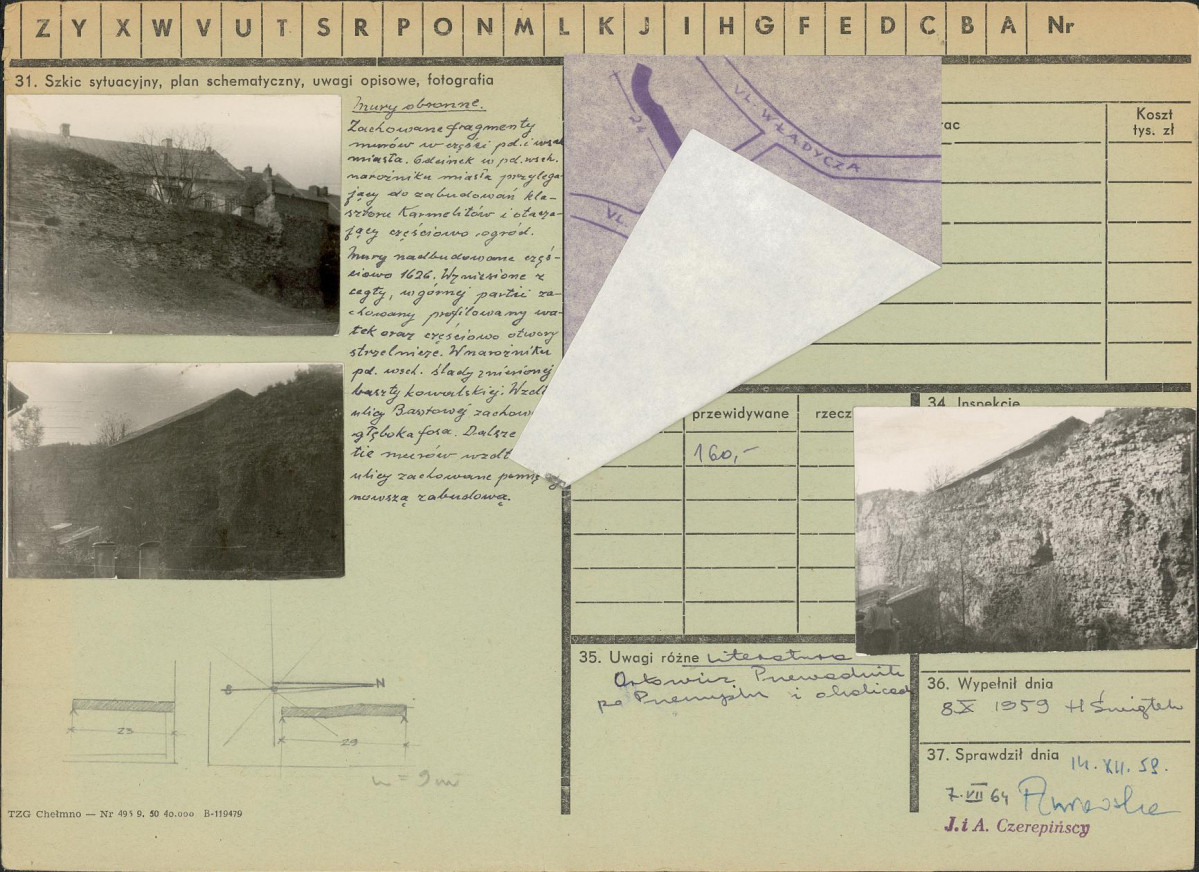 Z Y X W V U T S R P O N M L K J I H G F E D C B A Nr
31. Szkic sytuacyjny, plan schematyczny, uwagi opisowe, fotografia
Mury obronne.
Zachowane fragmenty
murów w części pd. i wsch
miasta. Odcinek w pd. wsch.
narożniku miasta przylega-
jący do zabudowań kla-
sztoru Karmelitów i otacza-
jący częściowo ogród.
Mury nadbudowane częś-
ciowo 1626. Wzniesione z
cegły, w górnej partii za-
chowany profilowany wa-
łek oraz częściowo otwory
strzelnicze. W narożniku
pd. wsch. ślady zniesionej
baszty kowalskiej. Wzdł
ulicy Basztowej zachow
głęboka fosa. Dalsze
tie murów wzdł
ulicy zachowane pomię
nowszą zabudową.
24
UL. WŁADYCZA
UL.
rac
Koszt
tys. zł
przewidywane
rzecz
160,-
34. Inspekcje
S
N
23
29
h = 9 m
35. Uwagi różne Literatura
Orłowicz, Przewodnik
po Przemyślu i okolicach
36. Wypełnił dnia
8 X 1959 H Świątek
37. Sprawdził dnia
14. XII. 59.
7. VII 64
J. i A. Czerepińscy
TZG Chełmno — Nr 495 9. 50 40.000 B-119479